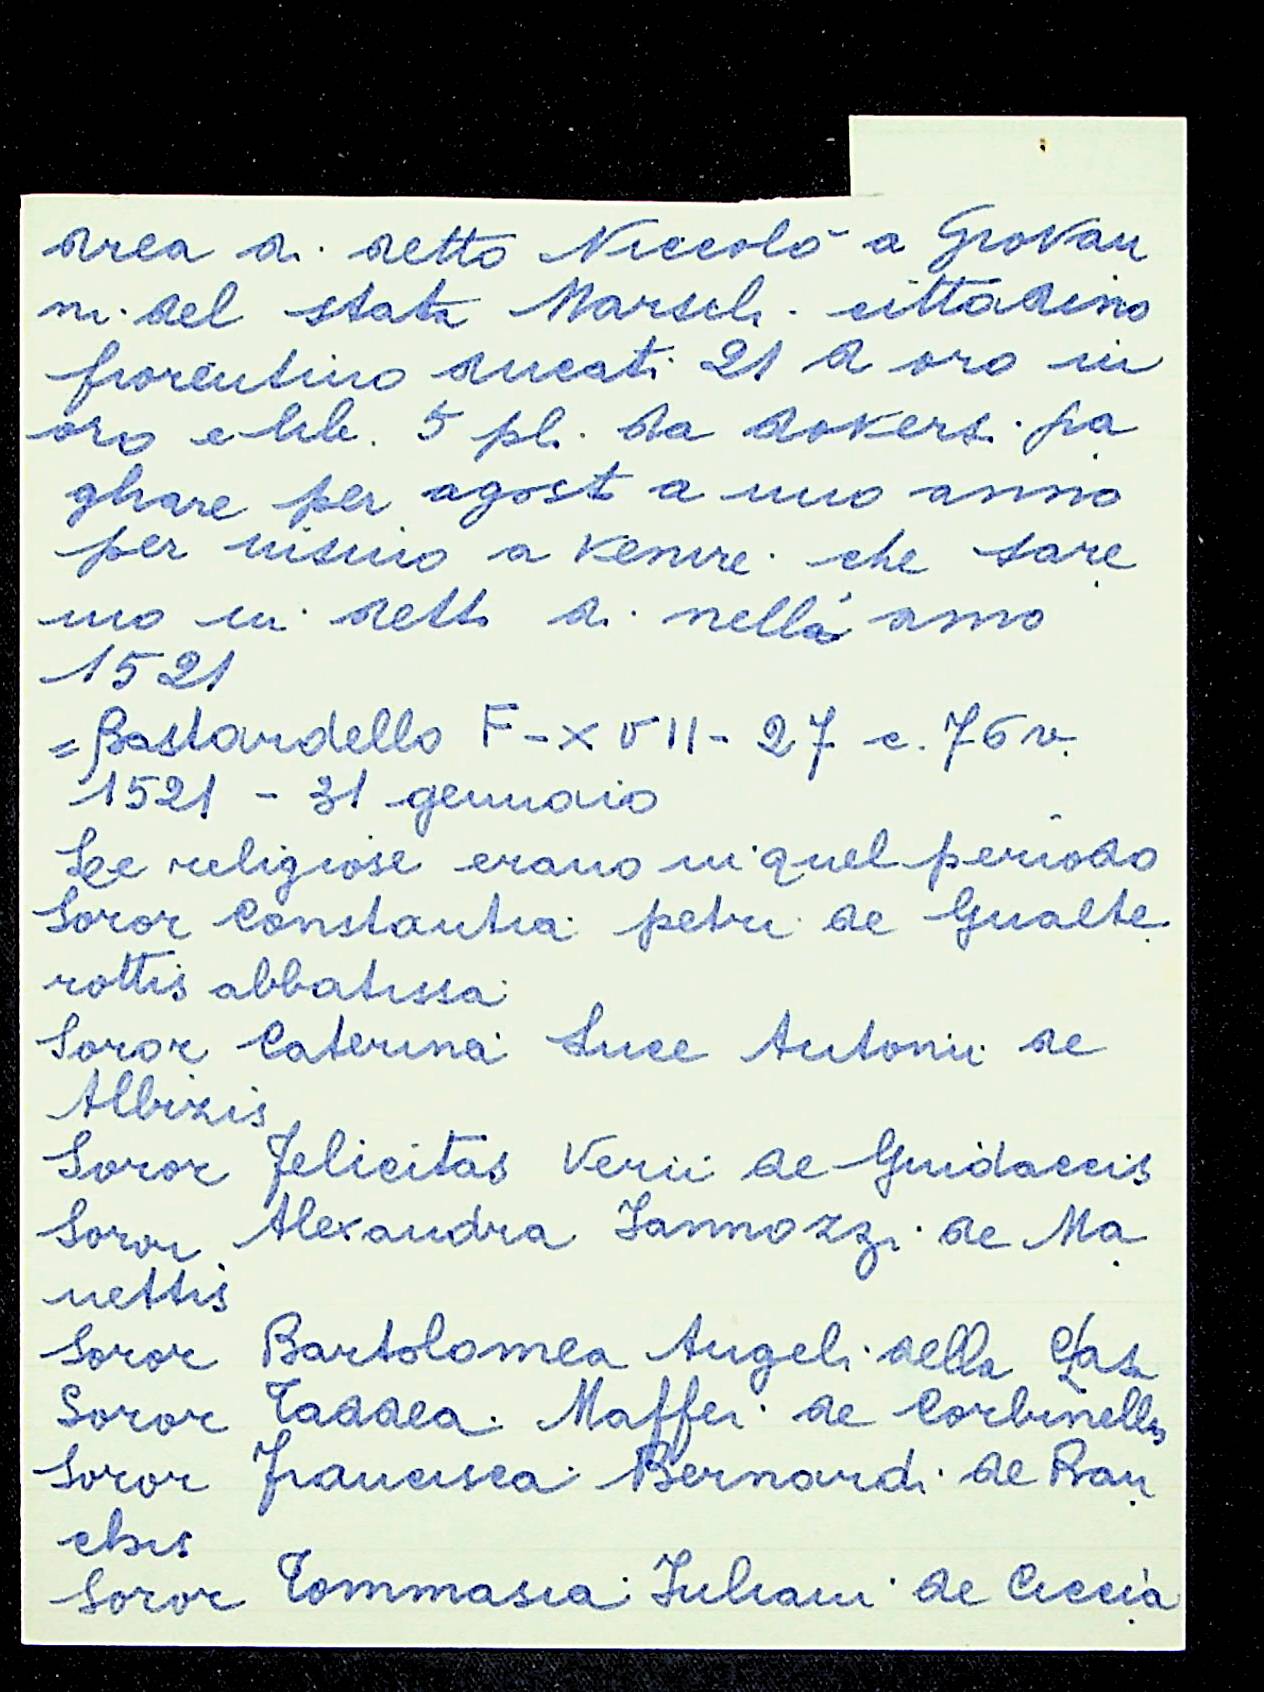 drea di detto Niccolò a Giovan
ni del stata Marsili cittadino
fiorentino ducati 21 d oro in
oro e lib. 5 pli. da doversi pa
ghare per agosto a uno anno
per visino a venire che sare
mo in detto di nella anno
1521
= Bastardello F-XVII-27 c. 76v.
1521 - 31 gennaio
Le religiose erano in quel periodo
Soror Constantia petri de Gualte
rottis abbatissa
Soror Caterina Luce Antonii de
Albizis
Soror Felicitas Verii de Guidaccis
Soror Alexandra Iannozzi de Ma
nettis
Soror Bartolomea Angeli della Casa
Soror Taddea Maffei de Corbinellis
Soror Francisca Bernardi de Ban
chis
Soror Tommasia Iuliani de Ciccia